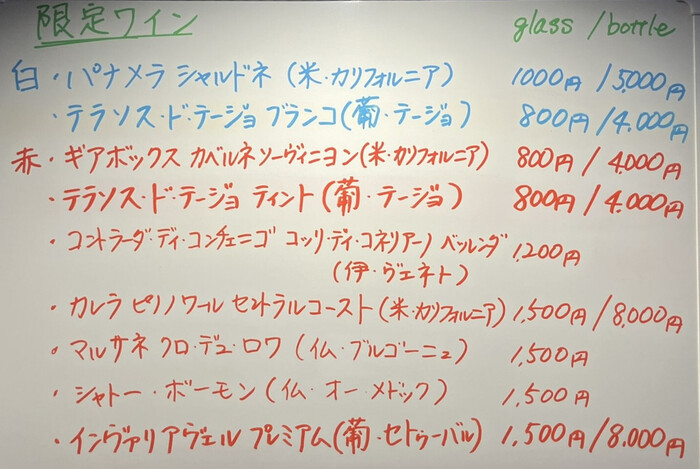 限定ワイン glass / bottle
白・パナメラ シャルドネ (米・カリフォルニア) 1000円 / 5,000円
・テラソス・ド・テージョ ブランコ(葡・テージョ) 800円 / 4,000円
赤・ギアボックス カベルネソーヴィニヨン(米・カリフォルニア) 800円 / 4,000円
・テラソス・ド・テージョ ティント(葡・テージョ) 800円 / 4,000円
・コントラーダ・ディ・コンチェニゴ コッリ・ディ・コネリアーノ ベッレンダ 1,200円
(伊・ヴェネト)
・カレラ ピノノワール セントラルコースト(米・カリフォルニア) 1,500円 / 8,000円
・マルサネ クロ・デュ・ロワ (仏・ブルゴーニュ) 1,500円
・シャトー・ボーモン(仏・オー・メドック) 1,500円
・インヴァリアヴェル プレミアム(葡・セトゥーバル) 1,500円 / 8,000円